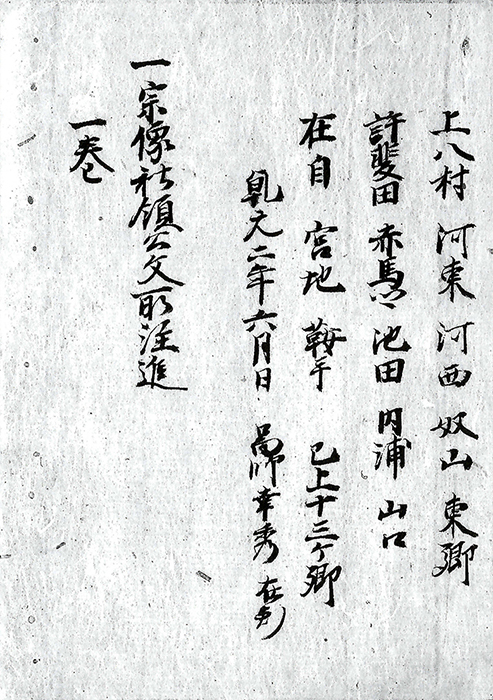 上八村 河東 河西 奴山 東郷
許斐田 赤馬 池田 内浦 山口
在自 宮地 鞍手 已上十三ケ郷
乹元二年六月日 嵓師幸秀 在判
一宗像社領公文所注進
一巻